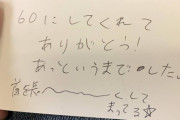 60にしてくれて
ありがとう!
あっというまでしたし
くして
まってる☆